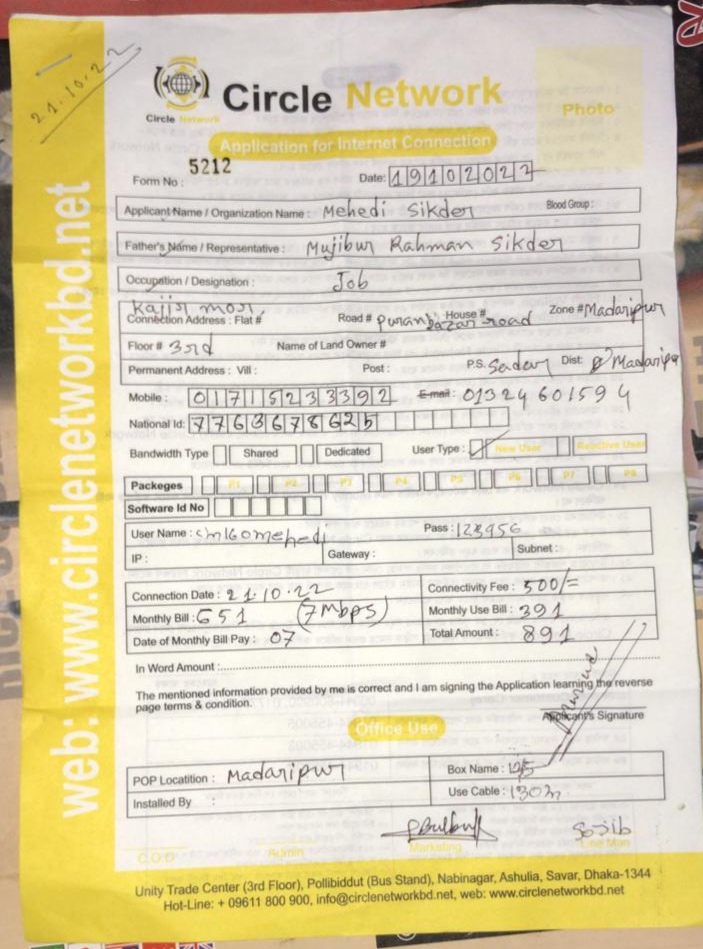 21.10.22
Circle Network
Circle Network
Photo
Application for Internet Connection
Form No : 5212 Date: 19102022
Applicant Name / Organization Name : Mehedi Sikder Blood Group :
Father's Name / Representative : Mujibur Rahman Sikder
Occupation / Designation : Job
Connection Address : Flat # Kajir mor, Road # puranbazar road House # Zone # Madaripur
Floor # 3rd Name of Land Owner #
Permanent Address : Vill : Post : P.S. Sadar Dist: Madaripur
Mobile : 01715233392 E-mail : 01324601594
National Id: 7763678625
Bandwidth Type Shared Dedicated User Type : New User Reactive User
Packeges P1 P2 P3 P4 P5 P6 P7 P8
Software Id No
User Name : Pass :
IP : Gateway : Subnet :
Connection Date : 21.10.22 Connectivity Fee : 500/=
Monthly Bill : 651 (7Mbps) Monthly Use Bill : 391
Date of Monthly Bill Pay : 07 Total Amount : 891
In Word Amount :
The mentioned information provided by me is correct and I am signing the Application learning the reverse
page terms & condition.
Applicant's Signature
Office Use
POP Locatition : Madaripur Box Name :
Installed By : Use Cable : 130m
Sojib
C.O.D Admin Marketing Line Man
Unity Trade Center (3rd Floor), Pollibiddut (Bus Stand), Nabinagar, Ashulia, Savar, Dhaka-1344
Hot-Line: + 09611 800 900, info@circlenetworkbd.net, web: www.circlenetworkbd.net
web: www.circlenetworkbd.net